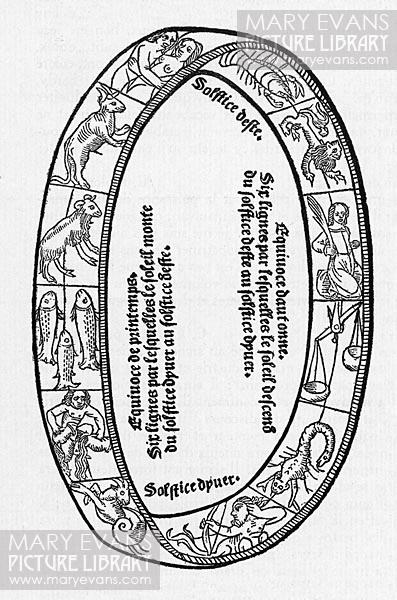 MARY EVANS
PICTURE LIBRARY
www.maryevans.com
Solstice deste.
Equinoce de printemps.
Six lignes par lesquelles le soleil monte
du solstice dyuer au solstice deste.
Equinoce dautonne.
Six lignes par lesquelles le soleil descend
du solstice deste au solstice dyuer.
Solstice dyuer.
MARY EVANS
PICTURE LIBRARY
www.maryevans.com